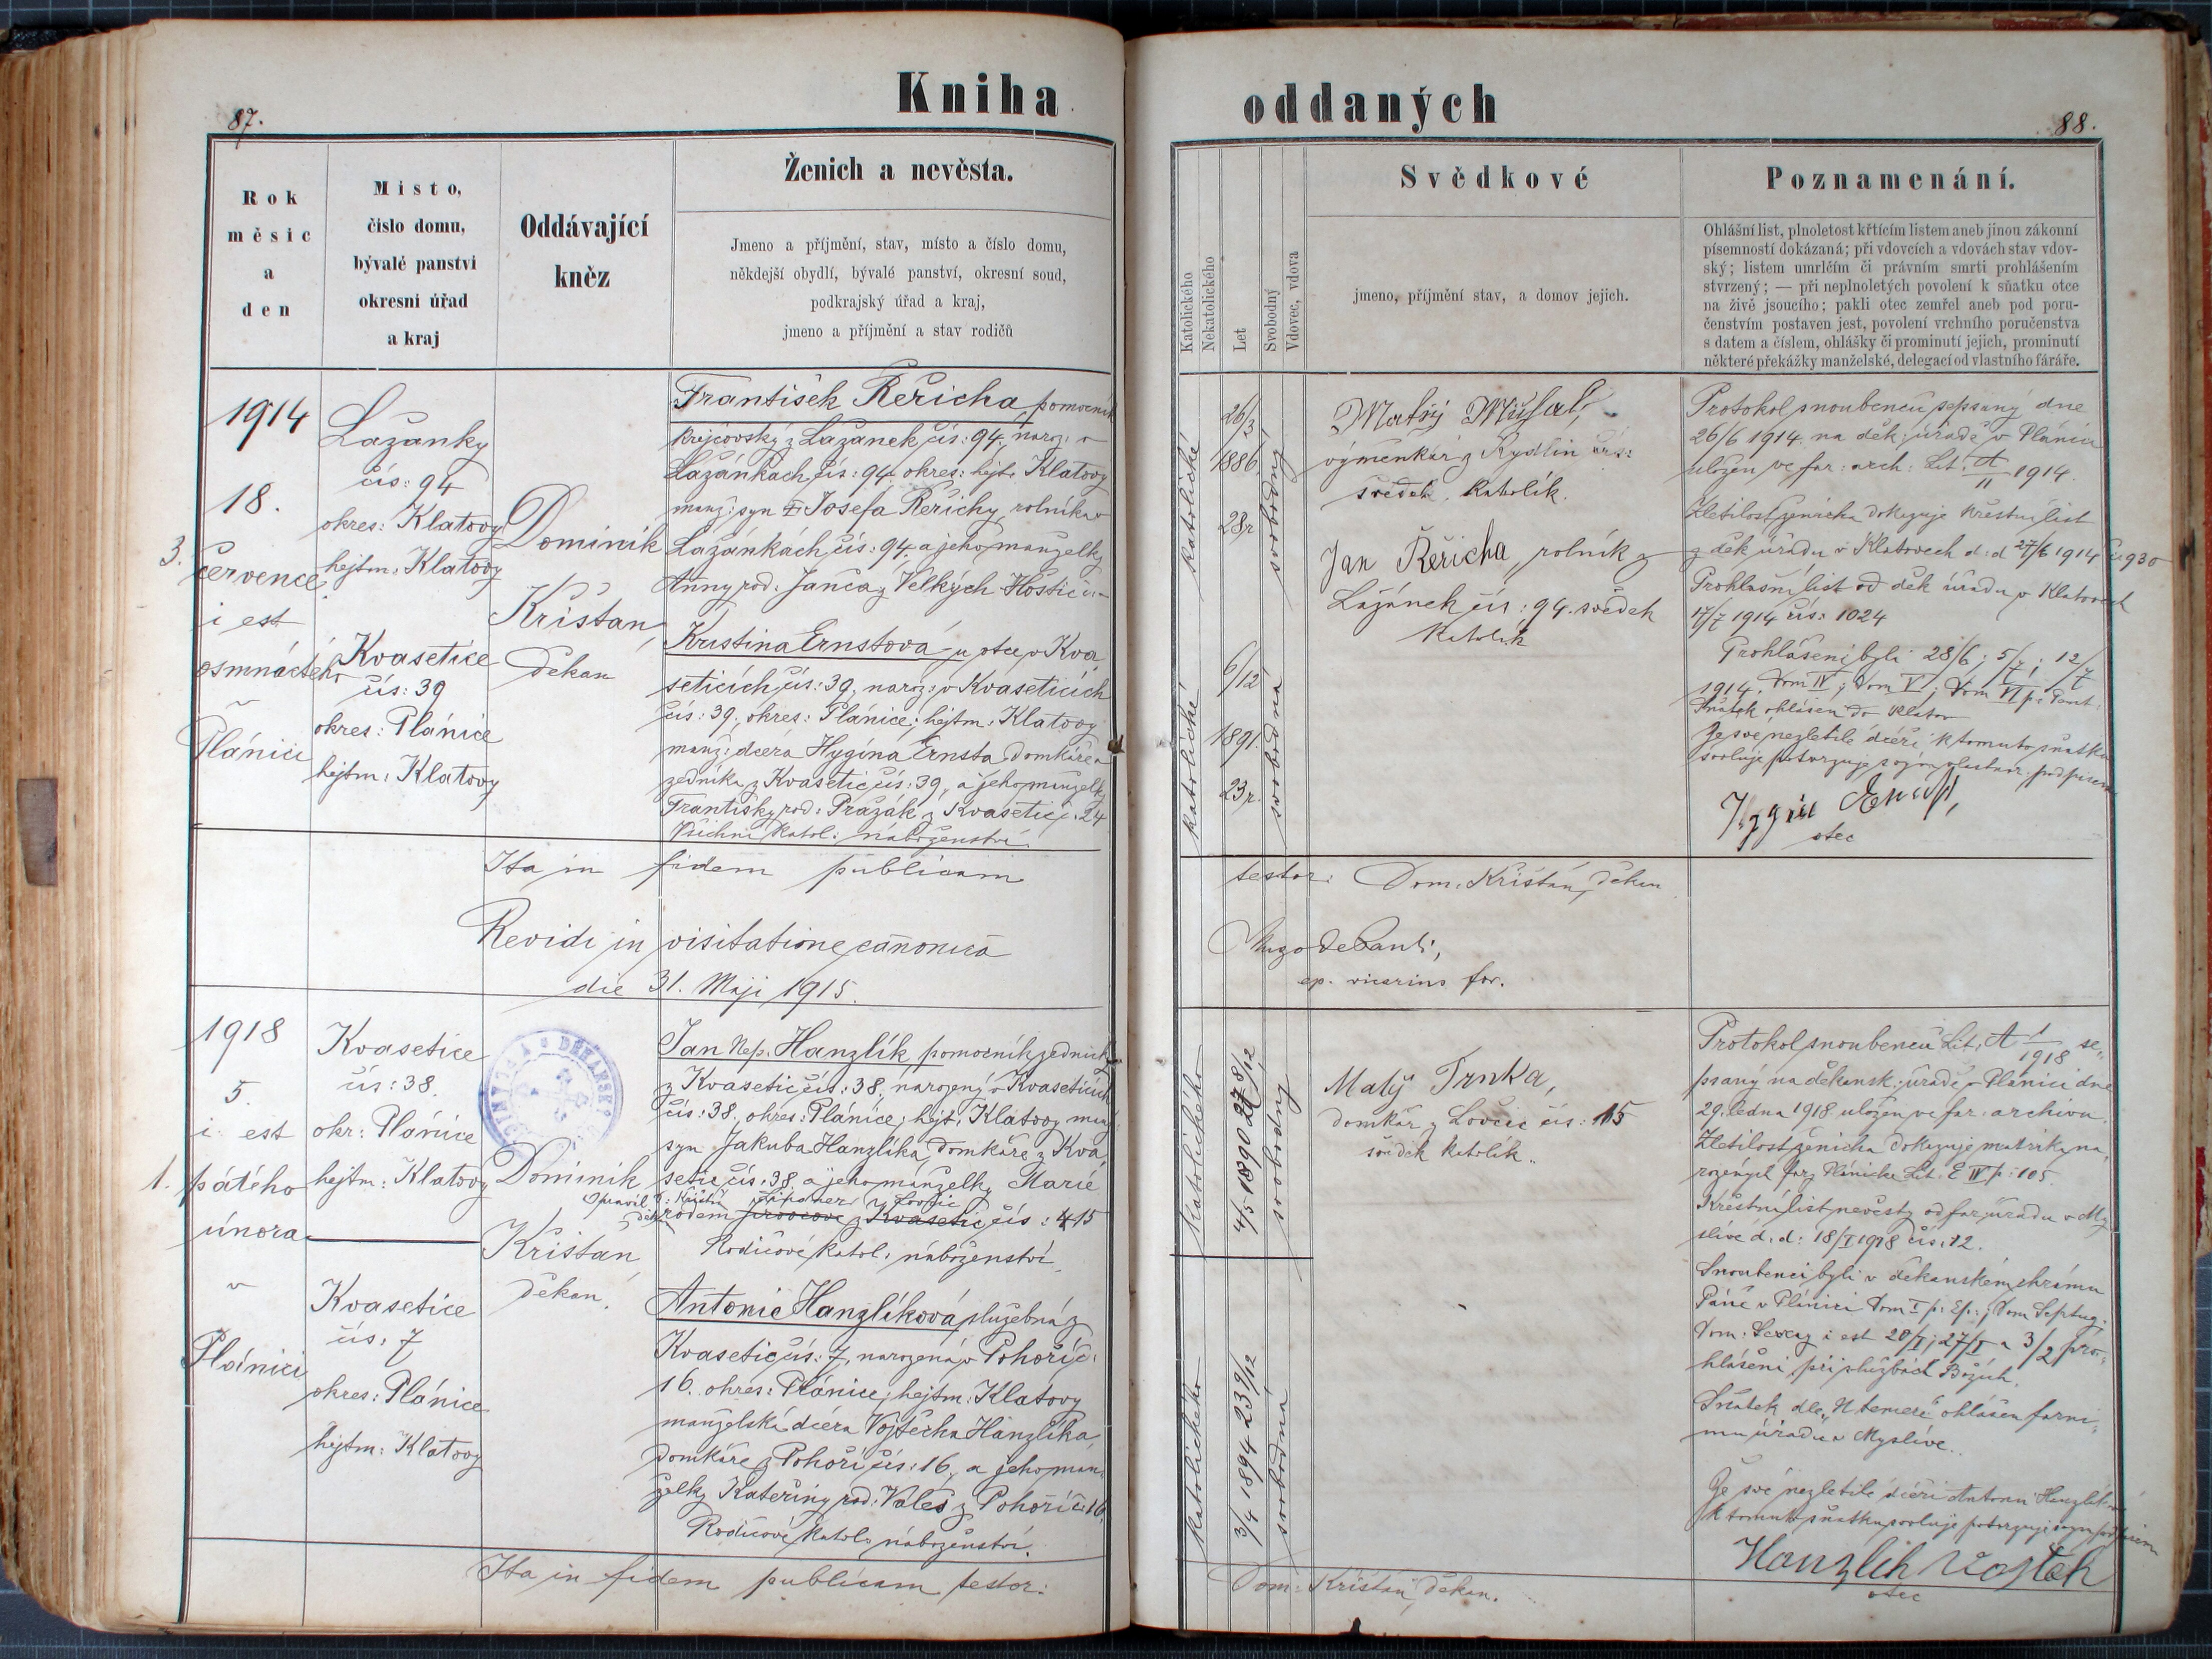 Kniha oddaných
87.
88.
Rok
měsíc
a
den
Místo,
číslo domu,
bývalé panství
okresní úřad
a kraj
Oddávající
kněz
Ženich a nevěsta.
Jmeno a příjmění, stav, místo a číslo domu,
někdejší obydlí, bývalé panství, okresní soud,
podkrajský úřad a kraj,
jmeno a příjmění a stav rodičů
Katolického
Nekatolického
Let
Svobodný
Vdovec, vdova
Svědkové
jmeno, příjmění stav, a domov jejich.
Poznamenání.
Ohlášní list, plnoletost křtícím listem aneb jinou zákonní
písemností dokázaná; při vdovcích a vdovách stav vdov-
ský; listem umrlčím či právním smrti prohlášením
stvrzený; — při neplnoletých povolení k sňatku otce
na živě jsoucího; pakli otec zemřel aneb pod poru-
čenstvím postaven jest, povolení vrchního poručenstva
s datem a číslem, ohlášky či prominutí jejich, prominutí
některé překážky manželské, delegací od vlastního faráře.
1914
18.
3. července
i est
osmnáctého
v
Plánici
Lažánky
čís: 94
okres: Klatovy
hejtm: Klatovy
Kvasetice
čís: 39
okres: Plánice
hejtm: Klatovy
Dominik
Křišťan,
děkan
František Řeřicha, pomocník
krejčovský z Lažánek čís: 94, naroz: v
Lažánkách, čís: 94. okres: hejt. Klatovy
manž: syn Josefa Řeřichy, rolníka v
Lažánkách, čís: 94. a jeho manželky
Anny rod: Janča z Velkých Hoštic
Kristina Ernstová u otce v Kva
seticích čís: 39, naroz: v Kvaseticích
čís: 39, okres: Plánice, hejtm: Klatovy
manž: dcera Hygina Ernsta, domkáře a
zedníka z Kvasetic čís: 39, a jeho manželky
Františky rod: Pražák z Kvasetic č: 24
Všichni katol: náboženství.
katolické
26/3
1886
28 r
svobodný
katolické
6/12
1891.
23 r.
svobodná
Matěj
výměnkář z Rydlin čís:
svědek, katolík.
Jan Řeřicha, rolník z
Lažánek čís: 94. svědek
katolík
Protokol snoubenců sepsaný dne
26/6 1914. na děk: úřadě v Plánici
uložen ve far: arch: Lit: A/11 1914.
Zletilost ženicha dokazuje křestní list
z děk úřadu v Klatovech d: d 27/6 1914 č: 930
Prohlašní list od děk úřadu v Klatovech
17/7 1914 čís: 1024
Prohlášeni byli 28/6; 5/7; 12/7
1914. Dom IV; Dom V; Dom VI p: Pent.
Sňatek ohlášen do Klatov
Že své nezletilé dceři k tomuto sňatku
svoluje potvrzuje svým vlastnor. podpisem
otec
Ita in fidem publicam testor: Dom. Křišťan, děkan
Revidi in visitatione canonica
die 31. Maji 1915.
ep. vicarius for.
1918
5.
i est
1. pátého
února
v
Plánici
Kvasetice
čís: 38.
okr: Plánice
hejtm: Klatovy
Kvasetice
čís: 7
okres: Plánice
hejtm: Klatovy
Dominik
Křišťan,
děkan.
Jan Nep. Hanzlík pomocník zednický
z Kvasetic čís: 38, narozený v Kvaseticích
čís: 38. okres: Plánice, hejt. Klatovy manž:
syn Jakuba Hanzlíka domkáře z Kva
setic čís: 38 a jeho manželky Marie
rodem z Kvasetic čís: 15
Lovčic
Opravil D: Křišťan
Rodičové katol: náboženství.
Antonie Hanzlíková, služebná z
Kvasetic čís: 7, narozená v Pohoří č:
16. okres: Plánice, hejtm: Klatovy
manželská dcera Vojtěcha Hanzlíka,
domkáře z Pohoří čís: 16. a jeho man
želky Kateřiny rod: Valeš z Pohoří č: 16.
Rodičové katol: náboženství.
katolického
4/5 1890 27 8/12
svobodný
katolického
3/4 1894 23 9/12
svobodná
Matěj Trnka,
domkář z Lovčic čís: 15
svědek katolík.
Protokol snoubenců Lit: A 1/1918 se-
psaný na děkansk: úřadě v Plánici dne
29. ledna 1918 uložen ve far: archivu.
Zletilost ženicha dokazuje matrika na
rozených fary Plánické Lit: E IV p: 105.
Křestní list nevěsty od far úřadu v My
slívě d: d: 18/I 1918 čís: 12.
Snoubenci byli v děkanském chrámu
Páně v Plánici Dom I p: Ep.; Dom Septug.
Dom: Sexag i est 20/I; 27/I a 3/2 pro-
hlášeni při službách Božích.
Sňatek dle „N temere" ohlášen farní-
mu úřadu v Myslívě.
Že své nezletilé dceři Antonii Hanzlíkové
k tomuto sňatku svoluje potvrzuje svým podpisem
Hanzlík Vojtěch
otec
Ita in fidem publicam testor: Dom: Křišťan, děkan.